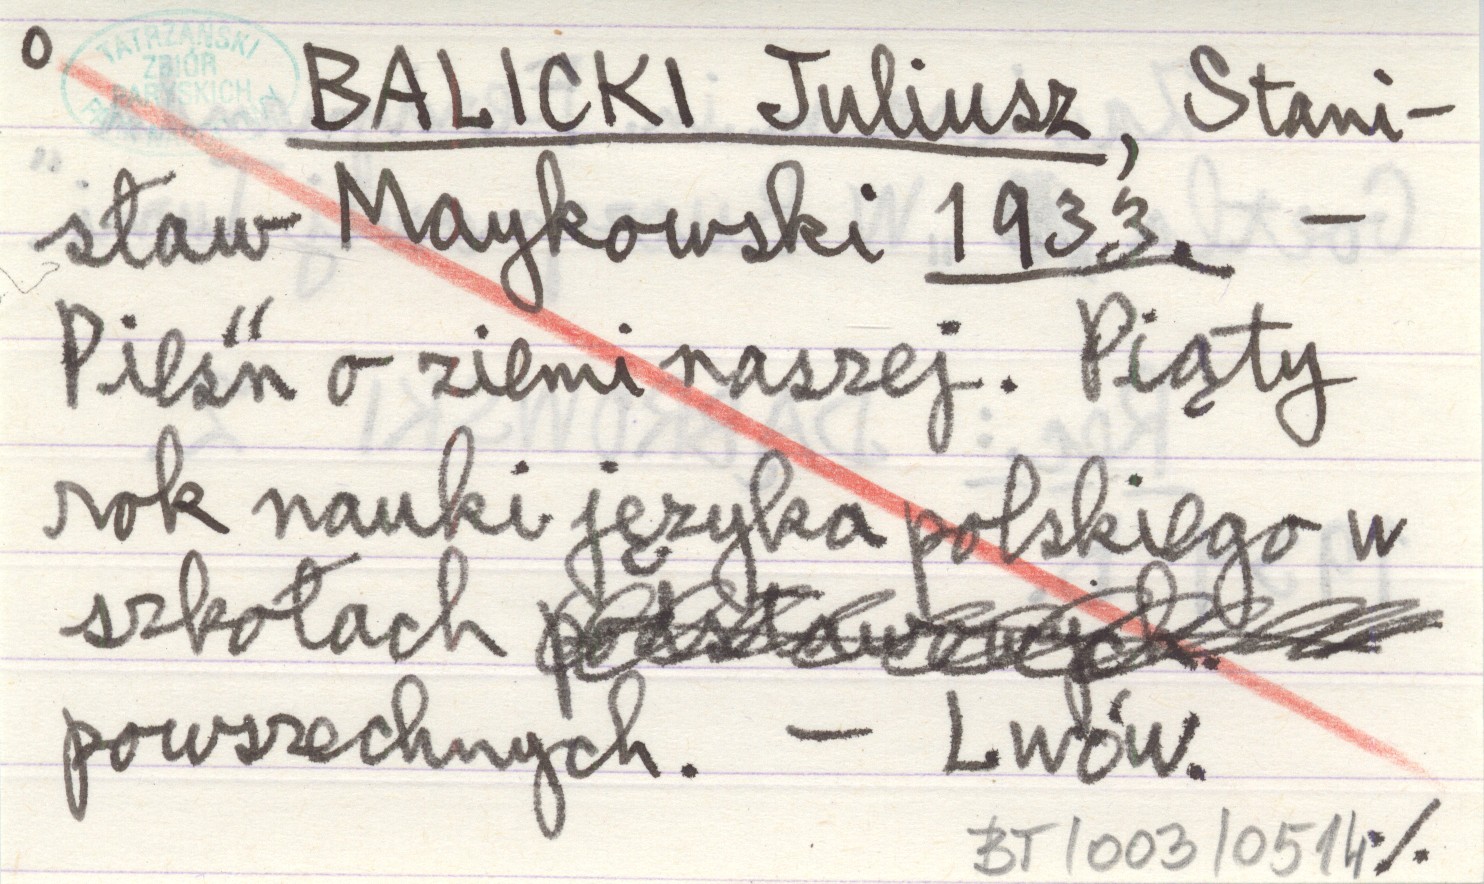 o
TATRZAŃSKI
ZBIÓR
PARYSKICH
BALICKI Juliusz, Stani-
sław Maykowski 1933. —
Pieśń o ziemi naszej. Piąty
rok nauki języka polskiego w
szkołach podstawowych
powszechnych. — Lwów.
BT/003/0514 ./.